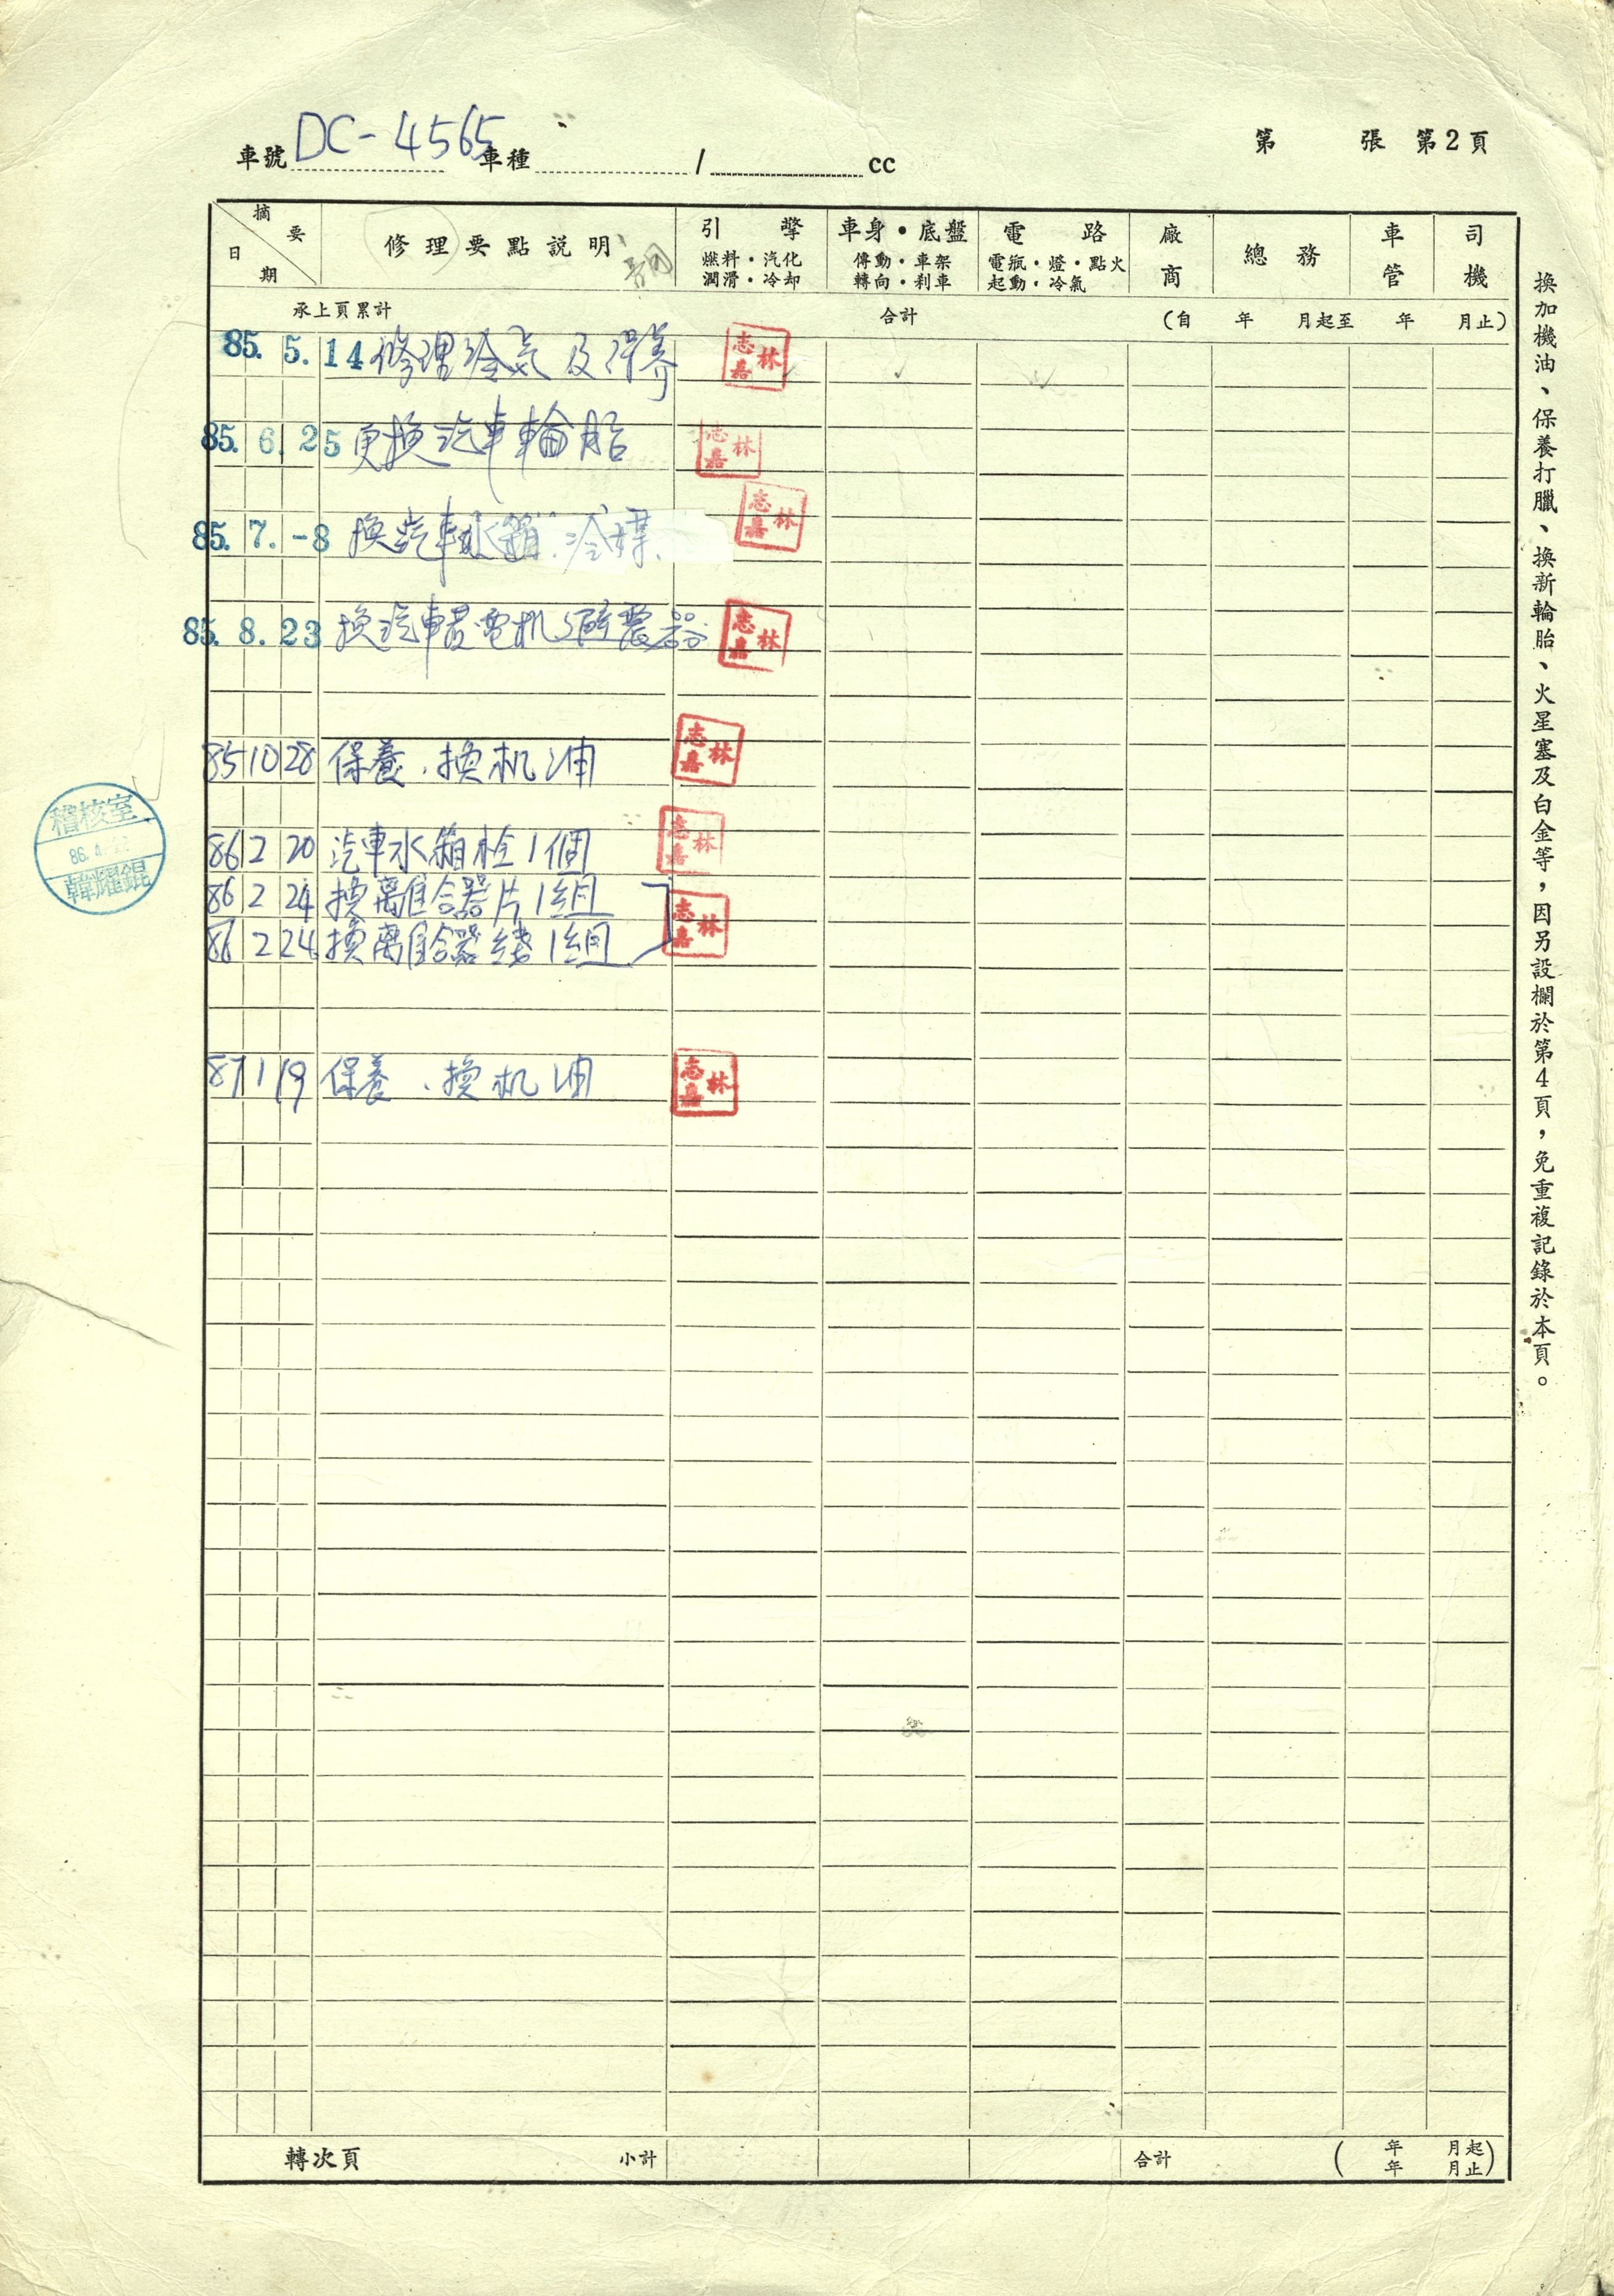 第 張 第2頁
車號 DC-4565 車種 / cc
摘要 日期 修理要點說明 引擎 燃料・汽化 潤滑・冷却 車身・底盤 傳動・車架 轉向・刹車 電路 電瓶・燈・點火 起動・冷氣 廠商 總務 車管 司機
承上頁累計 合計 (自 年 月起至 年 月止)
85. 5. 14 修理冷氣及保養 林志嘉
85. 6. 25 更換汽車輪胎 林志嘉
85. 7. -8 換汽車水箱、冷媒、 林志嘉
85. 8. 23 換汽車發電機、避震器 林志嘉
85 10 28 保養、換机油 林志嘉
86 2 20 汽車水箱栓1個 林志嘉
86 2 24 換離合器片1組
86 2 24 換離合器線1組 林志嘉
87 1 19 保養、換机油 林志嘉
稽核室
86. 4.
韓耀錕
轉次頁 小計 合計 ( 年 月起 年 月止)
換加機油、保養打臘、換新輪胎、火星塞及白金等，因另設欄於第4頁，免重複記錄於本頁。